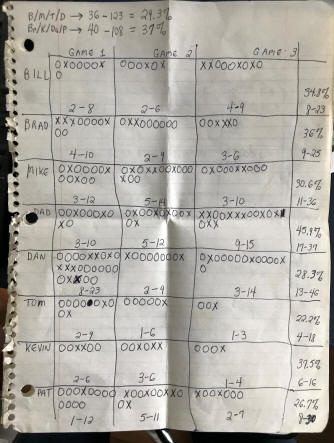 B/M/T/D → 36 - 123 = 29.3%
Br/K/Da/P → 40 - 108 = 37%
GAME 1 GAME 2 GAME 3
BILL OXOOOOX OOOXOX XXOOOXOXO
O
34.8%
2-8 2-6 4-9 8-23
BRAD XXXOOOOX OXXOOOOOO OOXXXO
OO 36%
4-10 2-9 3-6 9-25
MIKE OXOOOOX
OOXOO XOO
30.6%
3-12 5-14 3-10 11-36
DAD
XO OX
45.9%
3-10 5-12 9-15 17-37
DAN
O
28.3%
8-23 2-9 3-14 13-46
TOM OOOOOX OOX
OX
22.2%
2-9 1-6 1-3 4-18
KEVIN OOXXOO OOXOXX OOOX
37.5%
2-6 3-6 1-4 6-16
PAT OOOXOOOO XOOXOOXXO XOOXOOO
OOOO OX 26.7%
1-12 5-11 2-7 8-30